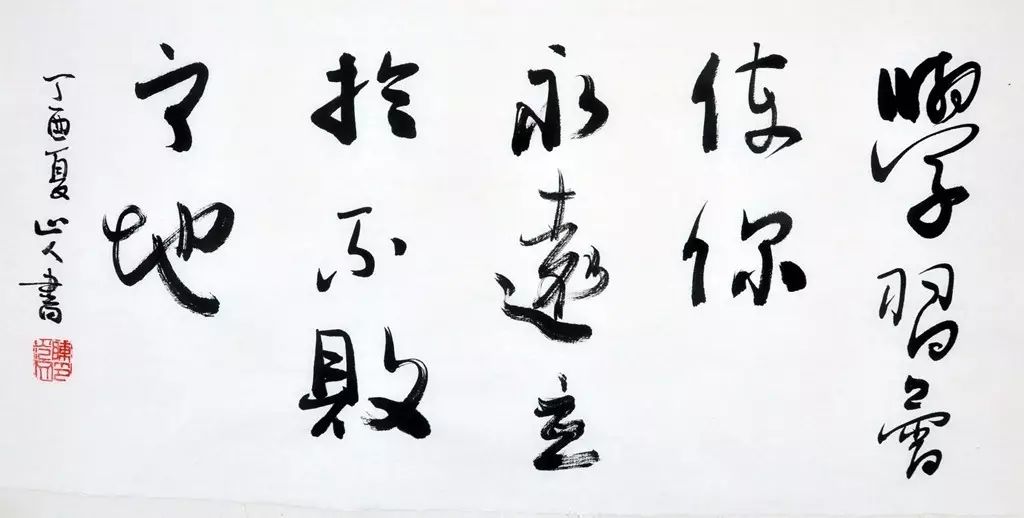 學習會
使你
永遠立
於不敗
之地
丁酉夏山人書